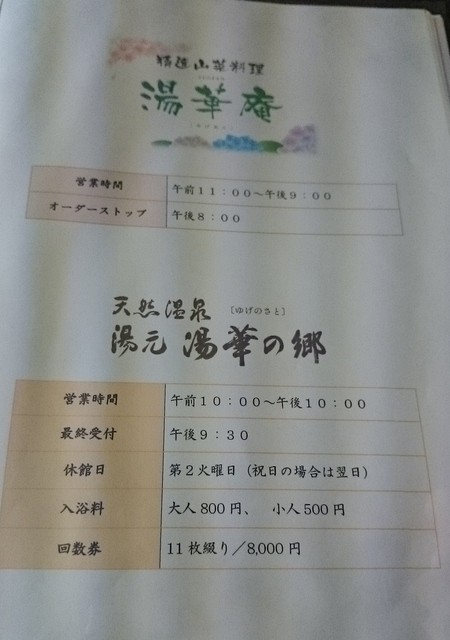 精進山菜料理
湯華庵
営業時間 午前11：00～午後9：00
オーダーストップ 午後8：00
天然温泉 〔ゆげのさと〕
湯元 湯華の郷
営業時間 午前10：00～午後10：00
最終受付 午後9：30
休館日 第2火曜日（祝日の場合は翌日）
入浴料 大人800円、 小人500円
回数券 11枚綴り／8,000円